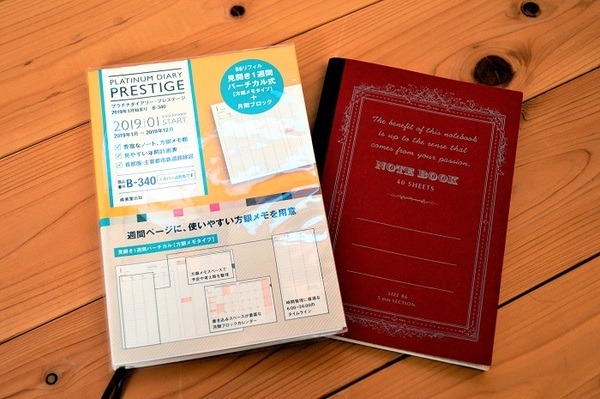 PLATINUM DIARY
PRESTIGE
プラチナダイアリー・プレステージ
2019年1月始まり B-340
2019|01
START
2019年1月 ~ 2019年12月
豊富なノート、方眼メモ欄
見やすい年間計画表
首都圏・主要都市鉄道路線図
B-340
成美堂出版
B6リフィル
見開き1週間
バーチカル式
[方眼メモタイプ]
+
月間ブロック
週間ページに、使いやすい方眼メモを用意
見開き1週間バーチカル[方眼メモタイプ]
方眼メモスペースで
予定や考え事を整理
書き込みスペースが豊富な
月間ブロックカレンダー
時間管理に最適な
6:00~24:00の
タイムライン
The benefit of this notebook
is up to the sense that
comes from your passion.
NOTE BOOK
40 SHEETS
SIZE B6
5 mm SECTION